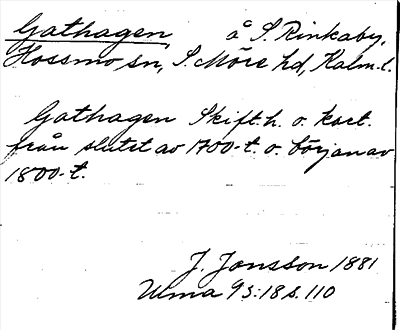 Gathagen å S. Rinkaby,
Hossmo sn, S. Möre hd, Kalm. l.
Gathagen Skift.h. o. kart.
från slutet av 1700-t. o. början av
1800-t.
J. Jonsson 1881
Ulma 93:18 s. 110